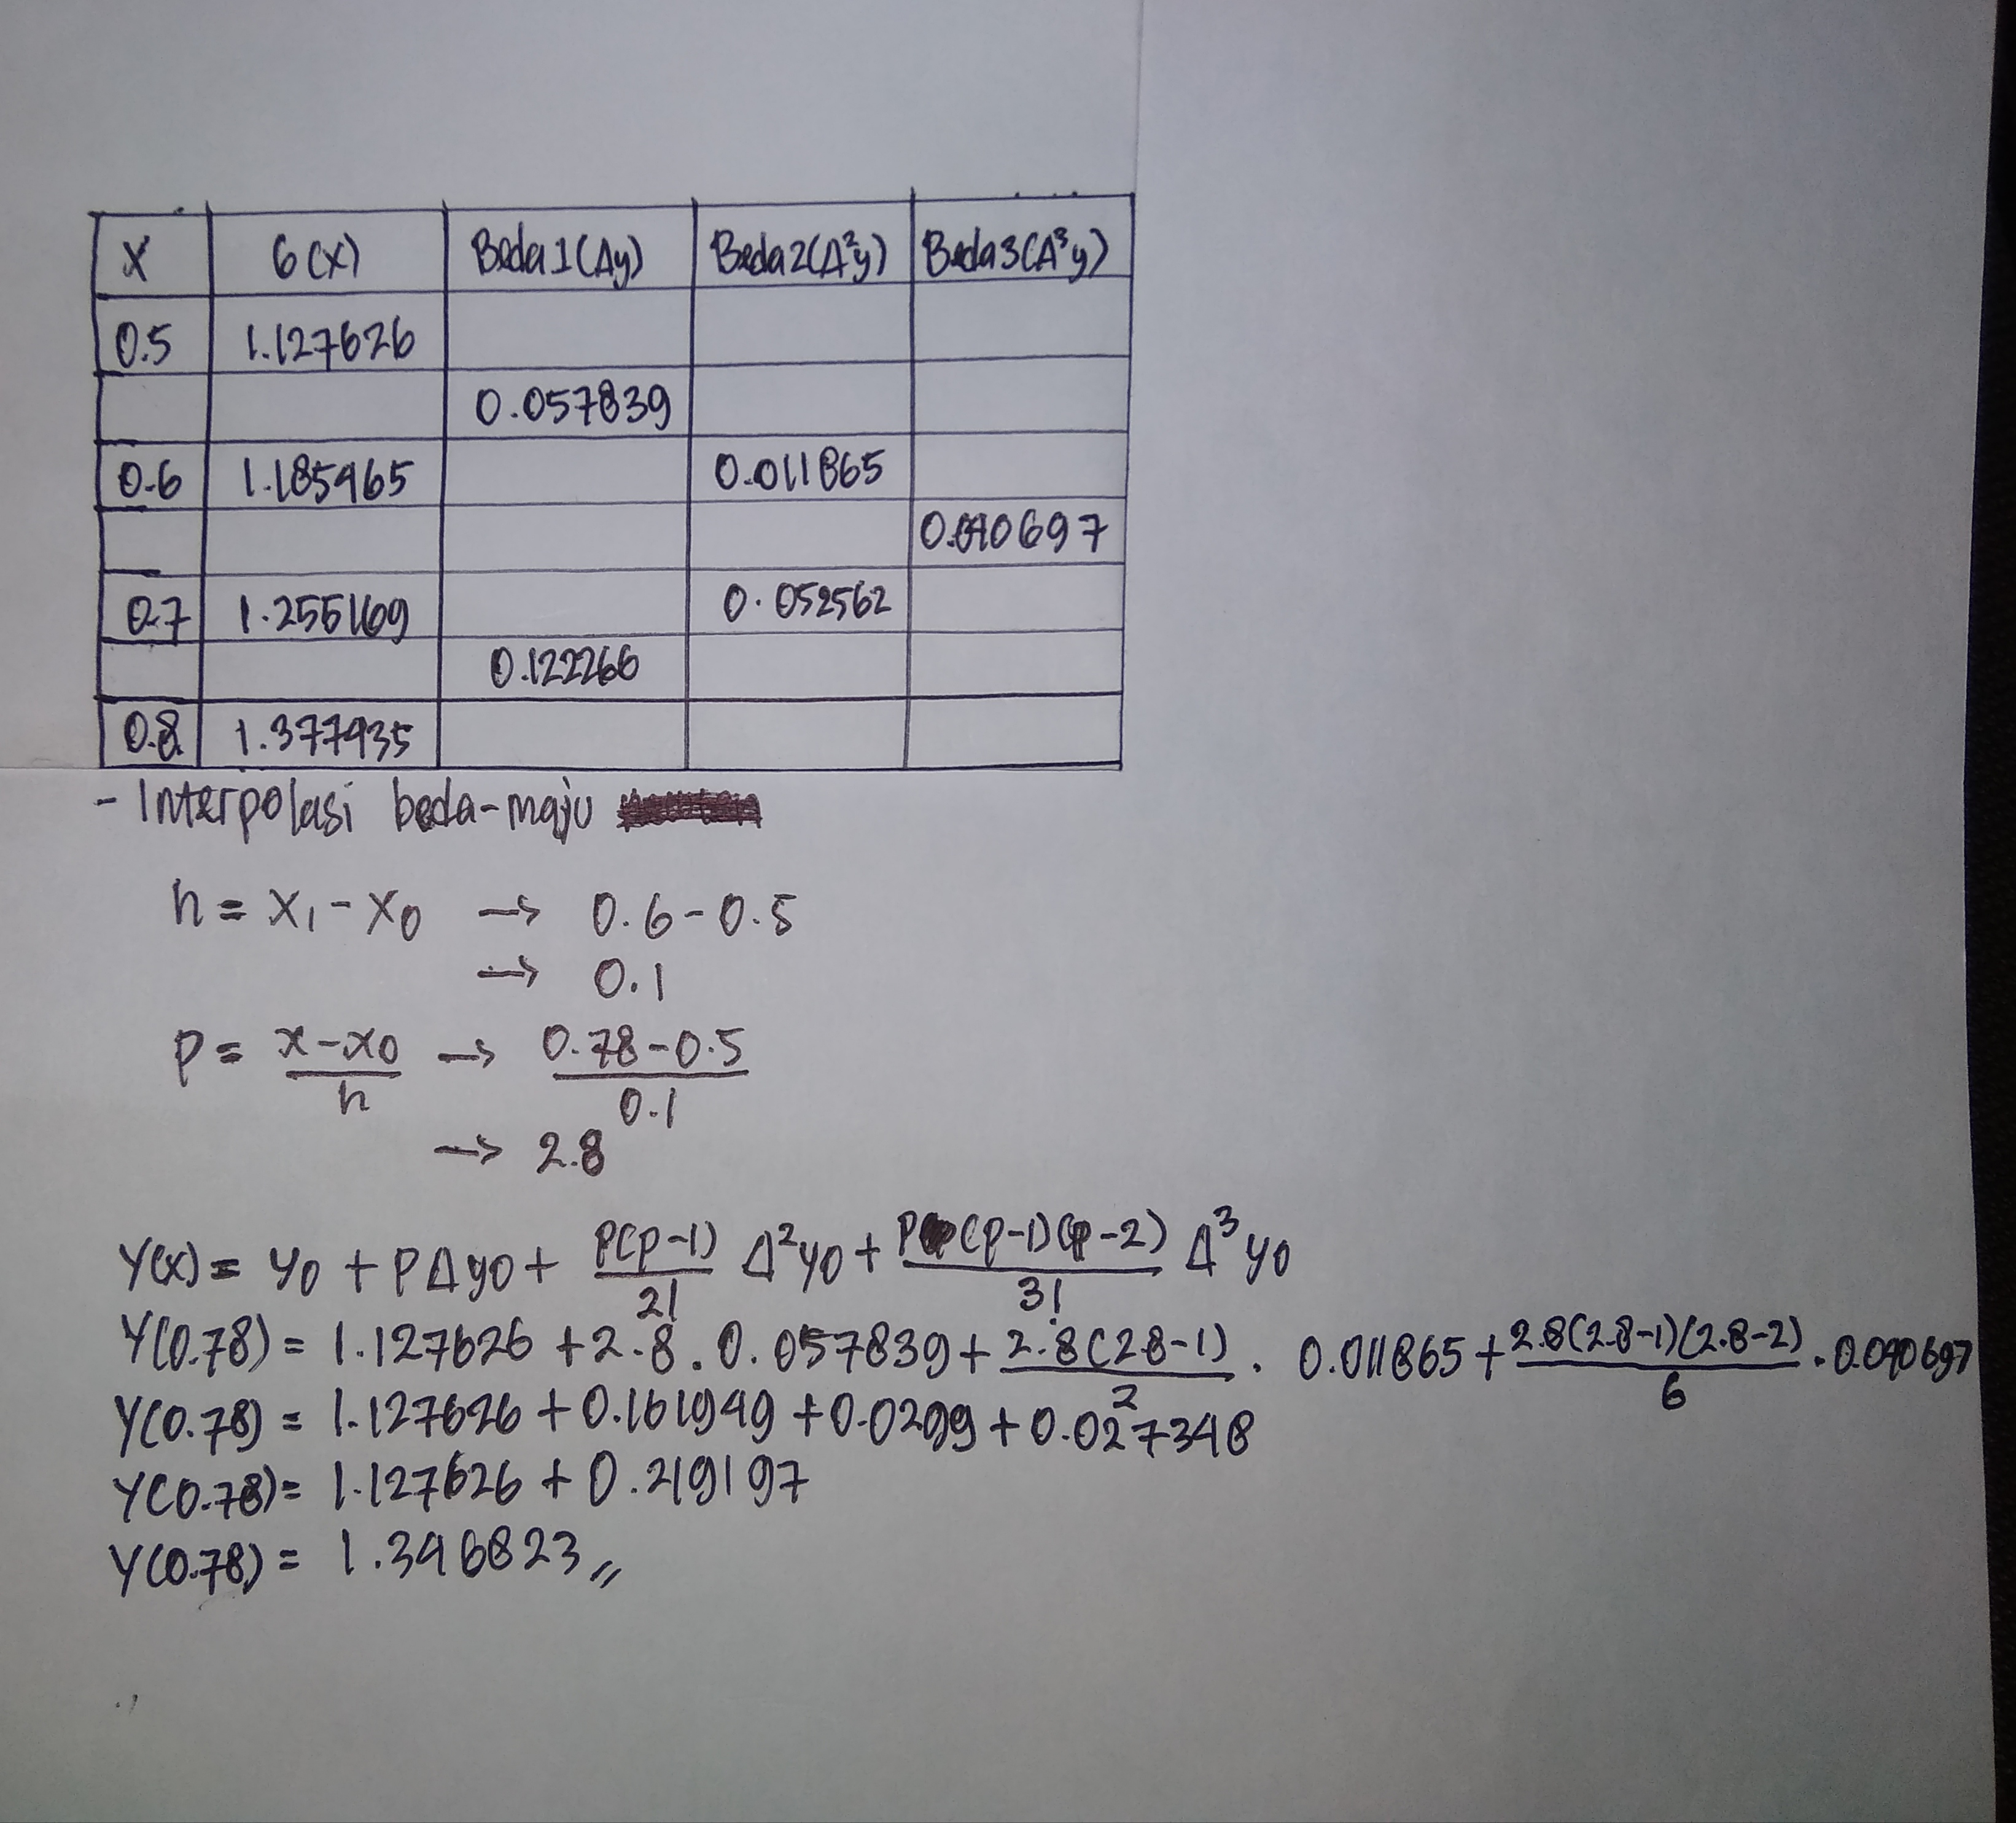 X 6(X) Beda1(Δy) Beda2(Δ²y) Beda3(Δ³y)
0.5 1.127626
0.057839
0.6 1.185465 0.011865
0.040697
0.7 1.255169 0.052562
0.122266
0.8 1.377435
- Interpolasi beda-maju
h = X₁ - X0 → 0.6 - 0.5
→ 0.1
P = (x - x0)/h → (0.78 - 0.5)/0.1
→ 2.8
Y(x) = y0 + PΔy0 + P(p-1)/2! Δ²y0 + P(p-1)(p-2)/3! Δ³y0
Y(0.78) = 1.127626 + 2.8 . 0.057839 + 2.8(2.8-1)/2 . 0.011865 + 2.8(2.8-1)(2.8-2)/6 . 0.040697
Y(0.78) = 1.127626 + 0.161949 + 0.0299 + 0.027348
Y(0.78) = 1.127626 + 0.219197
Y(0.78) = 1.346823 //